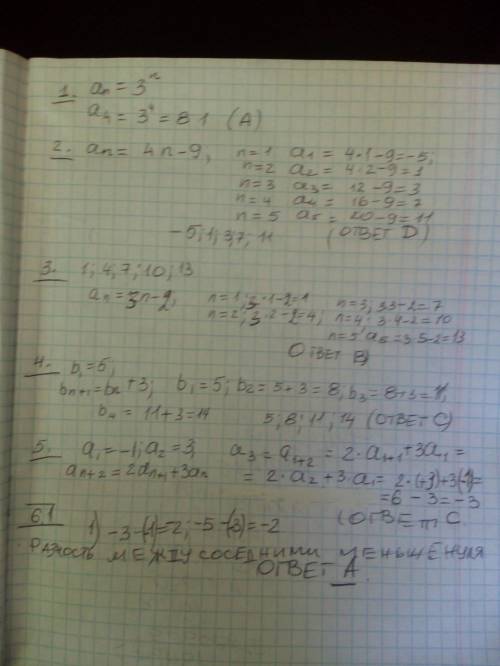 1. aₙ = 3ⁿ
a₄ = 3⁴ = 81 (A)
2. aₙ = 4n-9, n=1 a₁ = 4·1-9=-5;
n=2 a₂ = 4·2-9=1
n=3 a₃ = 12-9=3
n=4 a₄ = 16-9=7
n=5 a₅ = 20-9=11
-5;1;3;7; 11 (ОТВЕТ D)
3. 1; 4; 7; 10; 13
aₙ = 3n-2, n=1; 3·1-2=1 n=3; 3·3-2=7
n=2; 3·2-2=4; n=4; 3·4-2=10
n=5 a₅=3·5-2=13
ОТВЕТ B)
4. b₁=5;
bₙ₊₁=bₙ+3; b₁=5; b₂=5+3=8; b₃=8+3=11,
b₄ = 11+3=14 5; 8; 11; 14 (ОТВЕТ C)
5. a₁=-1; a₂=3, a₃ = a₁₊₂ = 2·a₁₊₁+3a₁=
aₙ₊₂=2aₙ₊₁+3aₙ = 2·a₂+3·a₁= 2·(+3)+3(-1)=
=6-3=-3
(ОТВЕТ C
6.1 1) -3-(-1)=-2; -5-(-3)=-2
РАЗНОСТЬ МЕЖДУ СОСЕДНИМИ МЕНЬШЕ НУЛЯ
ОТВЕТ A